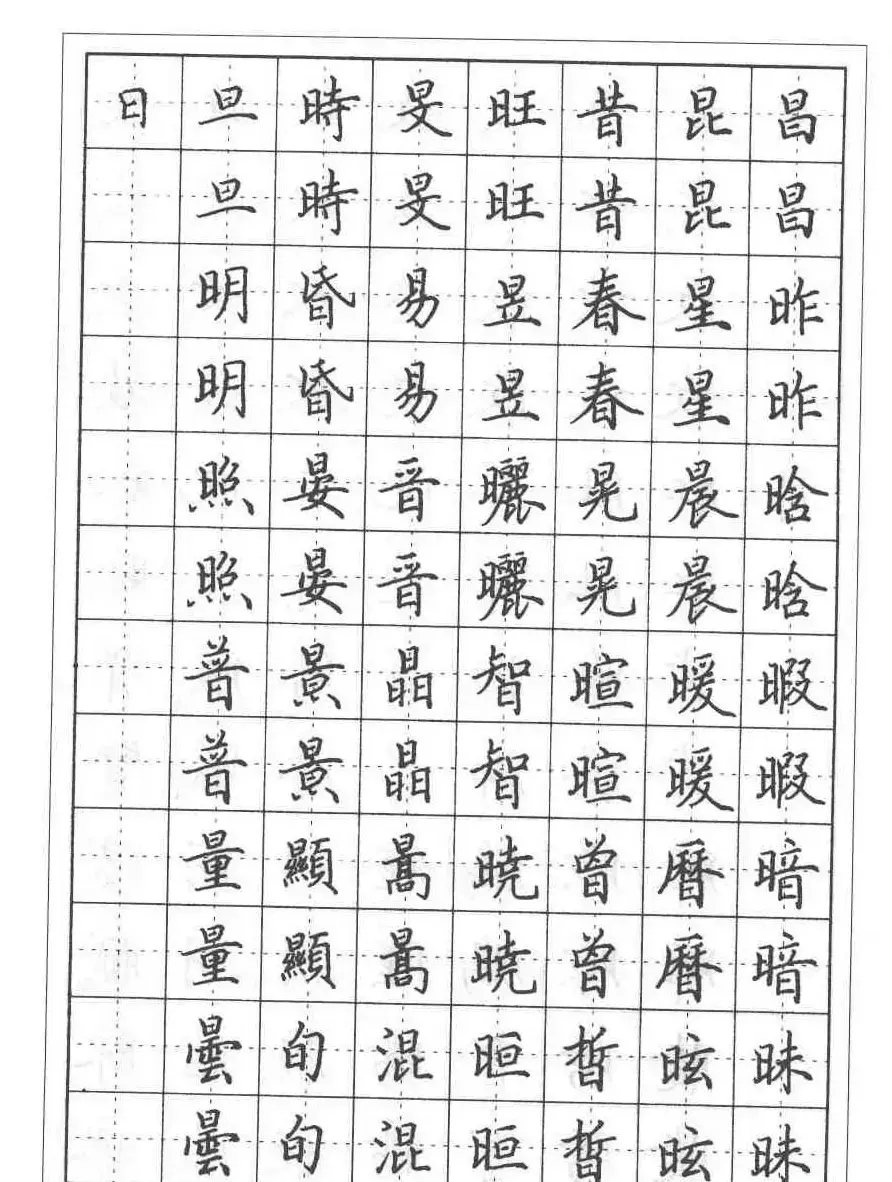 日 旦 時 旻 旺 昔 昆 昌
旦 時 旻 旺 昔 昆 昌
明 昏 易 昱 春 星 昨
明 昏 易 昱 春 星 昨
照 晏 晉 曬 晃 晨 晗
照 晏 晉 曬 晃 晨 晗
普 景 晶 智 暄 暖 暇
普 景 晶 智 暄 暖 暇
量 顯 暠 曉 曾 曆 暗
量 顯 暠 曉 曾 曆 暗
曇 旬 混 晅 晳 昡 昧
曇 旬 混 晅 晳 昡 昧